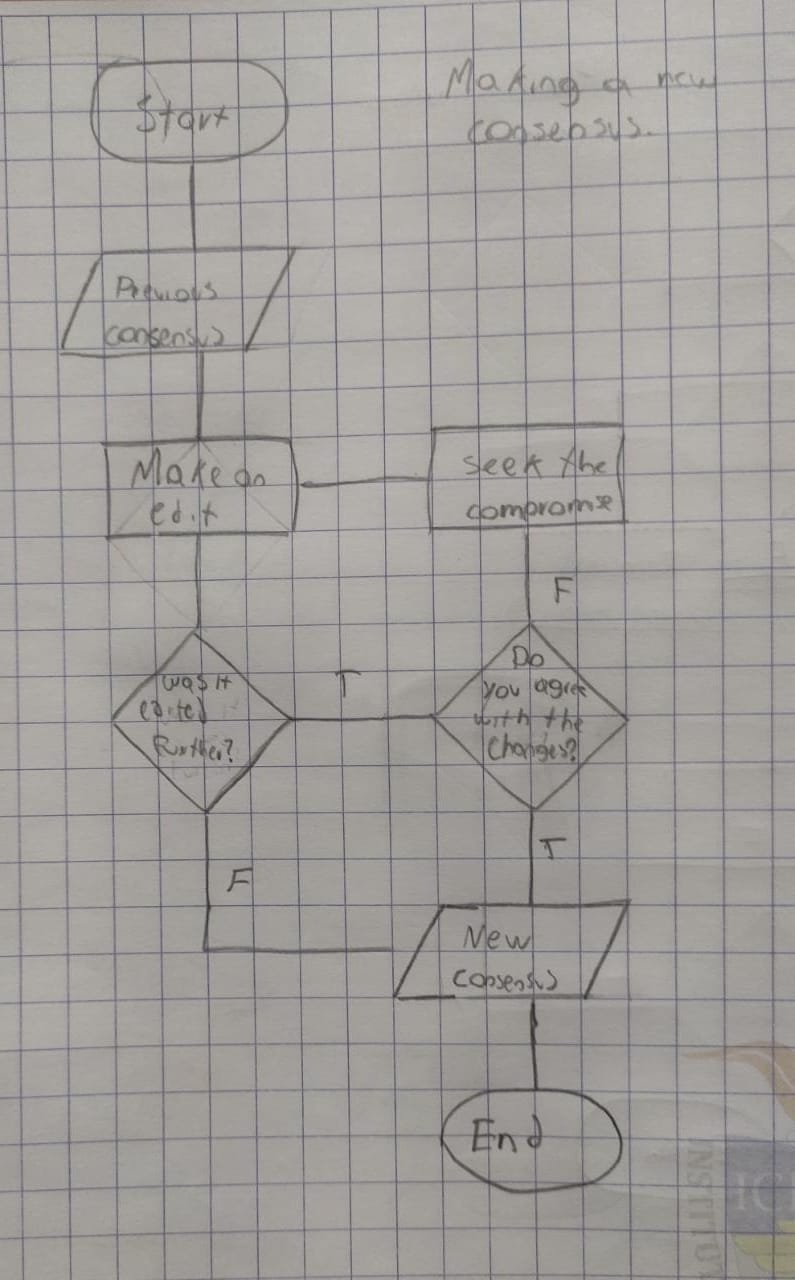 Start
Making a new
consensus.
Previous
consensus
Make an
edit
seek the
compromise
F
was it
edited
further?
T
Do
you agree
with the
changes?
F
T
New
consensus
End
INSTITU
IC